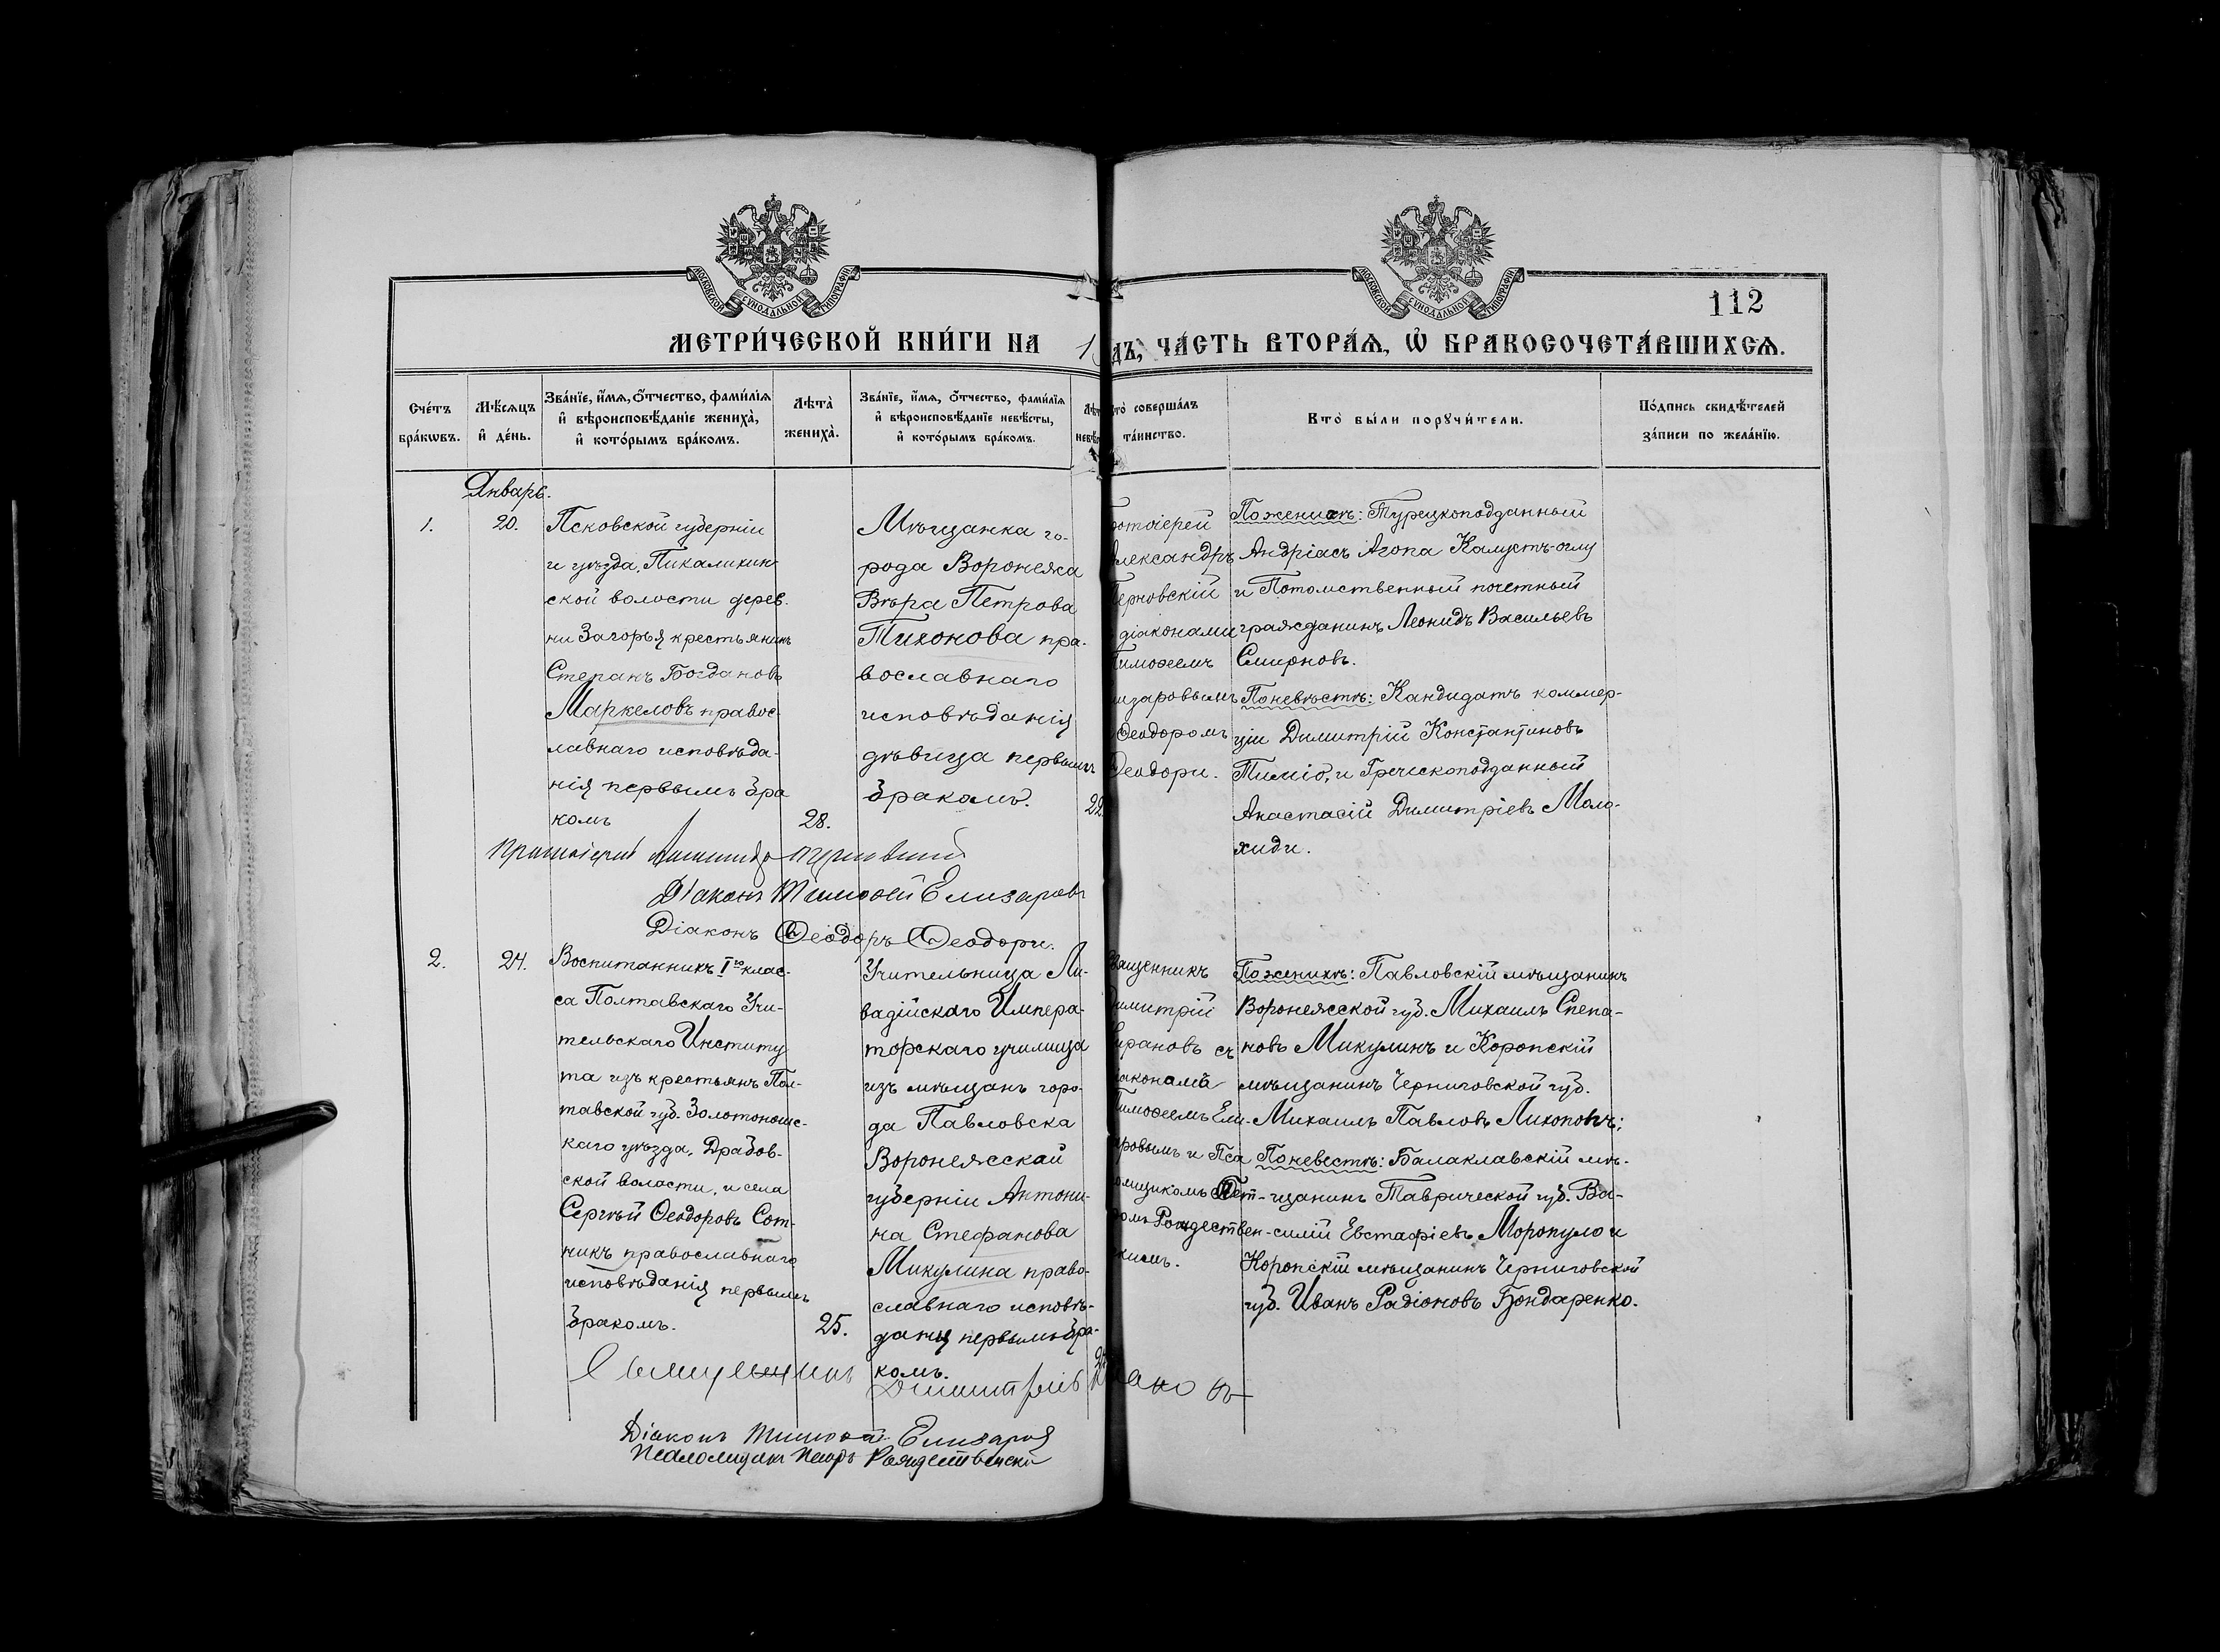 МОСКОВСКОЙ СУНОДАЛЬНОЙ ТИПОГРАФІИ
МОСКОВСКОЙ СУНОДАЛЬНОЙ ТИПОГРАФІИ
112
МЕТРИ́ЧЕСКОЙ КНИ́ГИ НА 1
дъ, ЧА́СТЬ ВТОРА́Ѧ, Ѡ БРАКОСОЧЕТА́ВШИХСѦ.
Сче́тъ
бра́кѡвъ.
Мѣ́сѧцъ
и҆ де́нь.
Зва́нїе, и҆́мѧ, ѻ҆́тчество, фами́лїѧ
и҆ вѣроисповѣ́данїе жениха̀,
и҆ кото́рымъ бра́комъ.
Лѣта̀
жениха̀.
Зва́нїе, и҆́мѧ, ѻ҆́тчество, фами́лїѧ
и҆ вѣроисповѣ́данїе невѣ́сты,
и҆ кото́рымъ бра́комъ.
Лѣт
невѣ
то̀ соверша́лъ
та́инство.
Кто̀ бы́ли порꙋчи́тели.
По́дпись свидѣ́телей
за́писи по жела́нїю.
Январь.
1.
20.
Псковской губерніи
и уѣзда, Пикалихин
ской волости дерев.
ни Загорья крестьянинъ
Степанъ Богдановъ
Маркеловъ правос-
лавнаго исповѣда-
нія первымъ бра
комъ
28.
Мѣщанка го-
рода Воронежа
Вѣра Петрова
Тихонова пра-
вославнаго
исповѣданія
дѣвица первымъ
бракомъ.
22
ротоіерей
лександръ
Терновскій
діаконами
Тимоѳеемъ
изаровымъ
Ѳеодоромъ
Ѳеодори.
По женихѣ: Турецкоподданный
Андріасъ Агопа Калустъ-оглу
и Потомственный почетный
гражданинъ Леонидъ Васильевъ
Смирновъ.
По невѣстѣ: Кандидатъ коммер-
ціи Димитрій Константиновъ
Тиміо, и Греческоподданный
Анастасій Димитріевъ Мало-
хиди.
Протоіерей Александръ Терновскій
Діаконъ Тимоѳей Елизаровъ
Діаконъ Ѳеодоръ Ѳеодори.
2.
24.
Воспитанникъ Iго клас-
са Полтавскаго Учи-
тельскаго Институ
та изъ крестьянъ Пол-
тавской губ. Золотоношс-
каго уѣзда, Драбов-
ской волости, и села
Сергѣй Ѳеодоровъ Сот-
никъ православнаго
исповѣданія первымъ
бракомъ.
25.
Учительница Ли-
вадійскаго Импера-
торскаго училища
изъ мѣщанъ горо-
да Павловска
Воронежской
губерніи Антони-
на Стефанова
Микулина право-
славнаго исповѣ-
данія первымъ бра-
комъ.
вященникъ
Димитрій
ирановъ съ
іаконами
Тимоѳеемъ Ели-
аровымъ и Пса
омщикомъ Пет-
ромъ Рождествен-
кимъ.
По женихѣ: Павловскій мѣщанинъ
Воронежской губ. Михаилъ Степа-
новъ Микулинъ и Коропскій
мѣщанинъ Черниговской губ.
Михаилъ Павловъ Лихоповъ;
По невестѣ: Балаклавскій мѣ-
щанинъ Таврической губ. Ва-
силій Евстафіевъ Моропуло и
Коропскій мѣщанинъ Черниговской
губ. Иванъ Радіоновъ Бондаренко.
Священникъ Димитрій
Діаконъ Тимоѳей Елизаров
Псаломщикъ Петръ Рождественскій